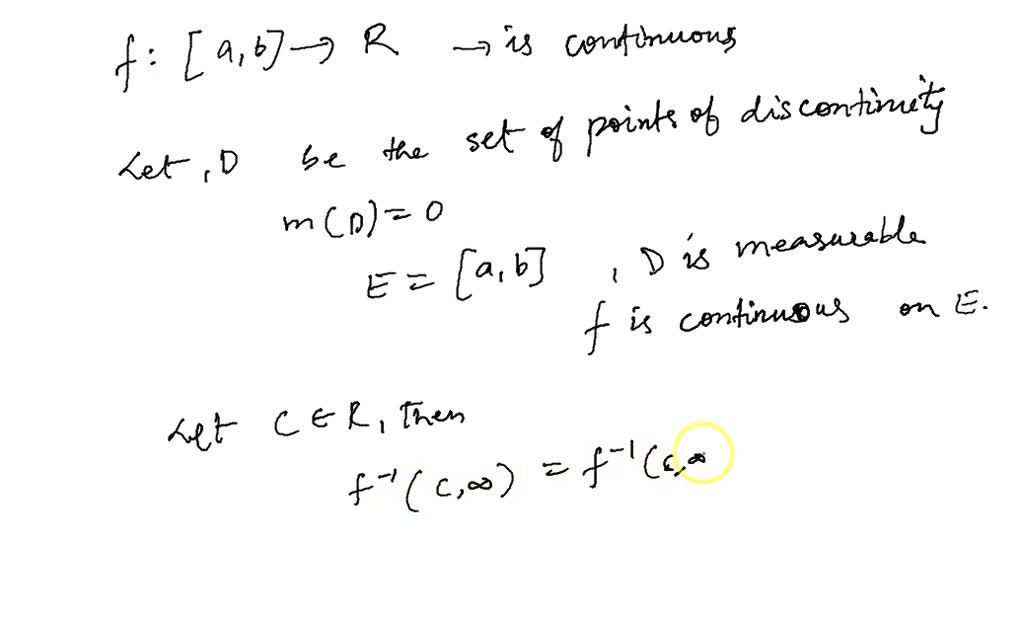 f: [a,b] → R → is continuous
Let, D be the set of points of discontinuity
m(D) = 0
E = [a,b] , D is measurable
f is continuous on E.
Let C ∈ R, Then
f⁻¹(c,∞) = f⁻¹(c,∞